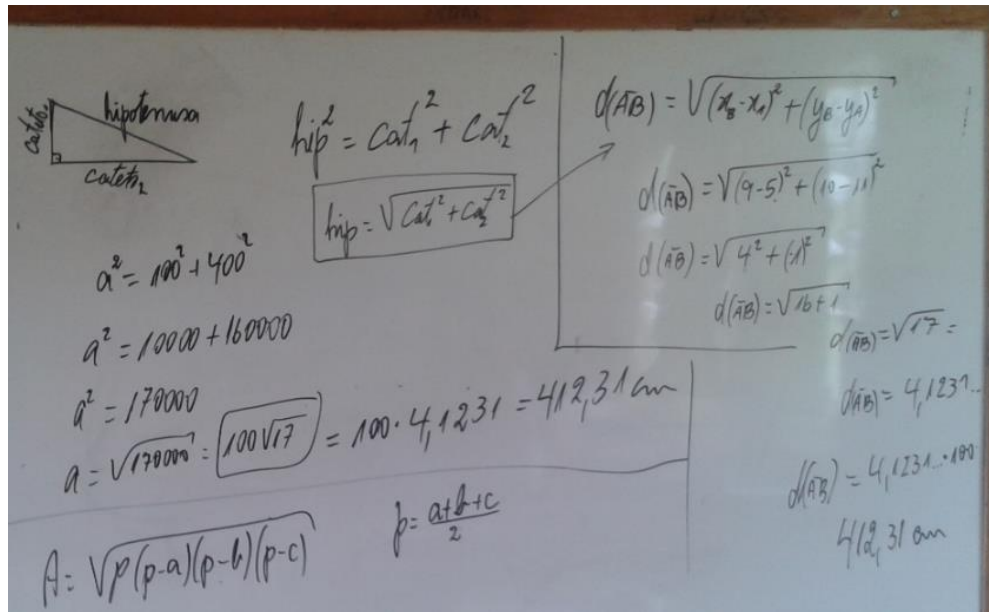 cateto₁
hipotenusa
cateto₂
hip² = Cat₁² + Cat₂²
hip = √(Cat₁² + Cat₂²)
a² = 100² + 400²
a² = 10000 + 160000
a² = 170000
a = √170000 = 100√17 = 100 · 4,1231 = 412,31 cm
A = √(p(p-a)(p-b)(p-c))
p = (a+b+c)/2
d(AB) = √((x_B - x_A)² + (y_B - y_A)²)
d(AB) = √((9-5)² + (10-11)²)
d(AB) = √(4² + (-1)²)
d(AB) = √(16+1)
d(AB) = √17 =
d(AB) = 4,1231...
d(AB) = 4,1231...·100
412,31 cm